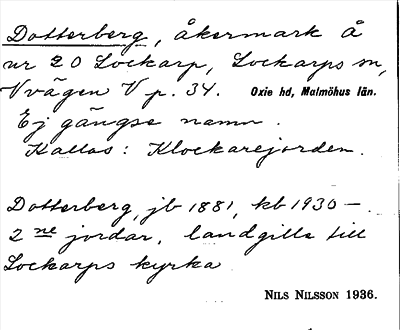 Dotterberg, åkermark å
nr 20 Lockarp, Lockarps sn,
V vägen V p. 34. Oxie hd, Malmöhus län.
Ej gängse namn.
Kallas: Klockarejorden.
Dotterberg, jb 1881, kb 1930 –.
2 ne jordar, landgille till
Lockarps kyrka
NILS NILSSON 1936.